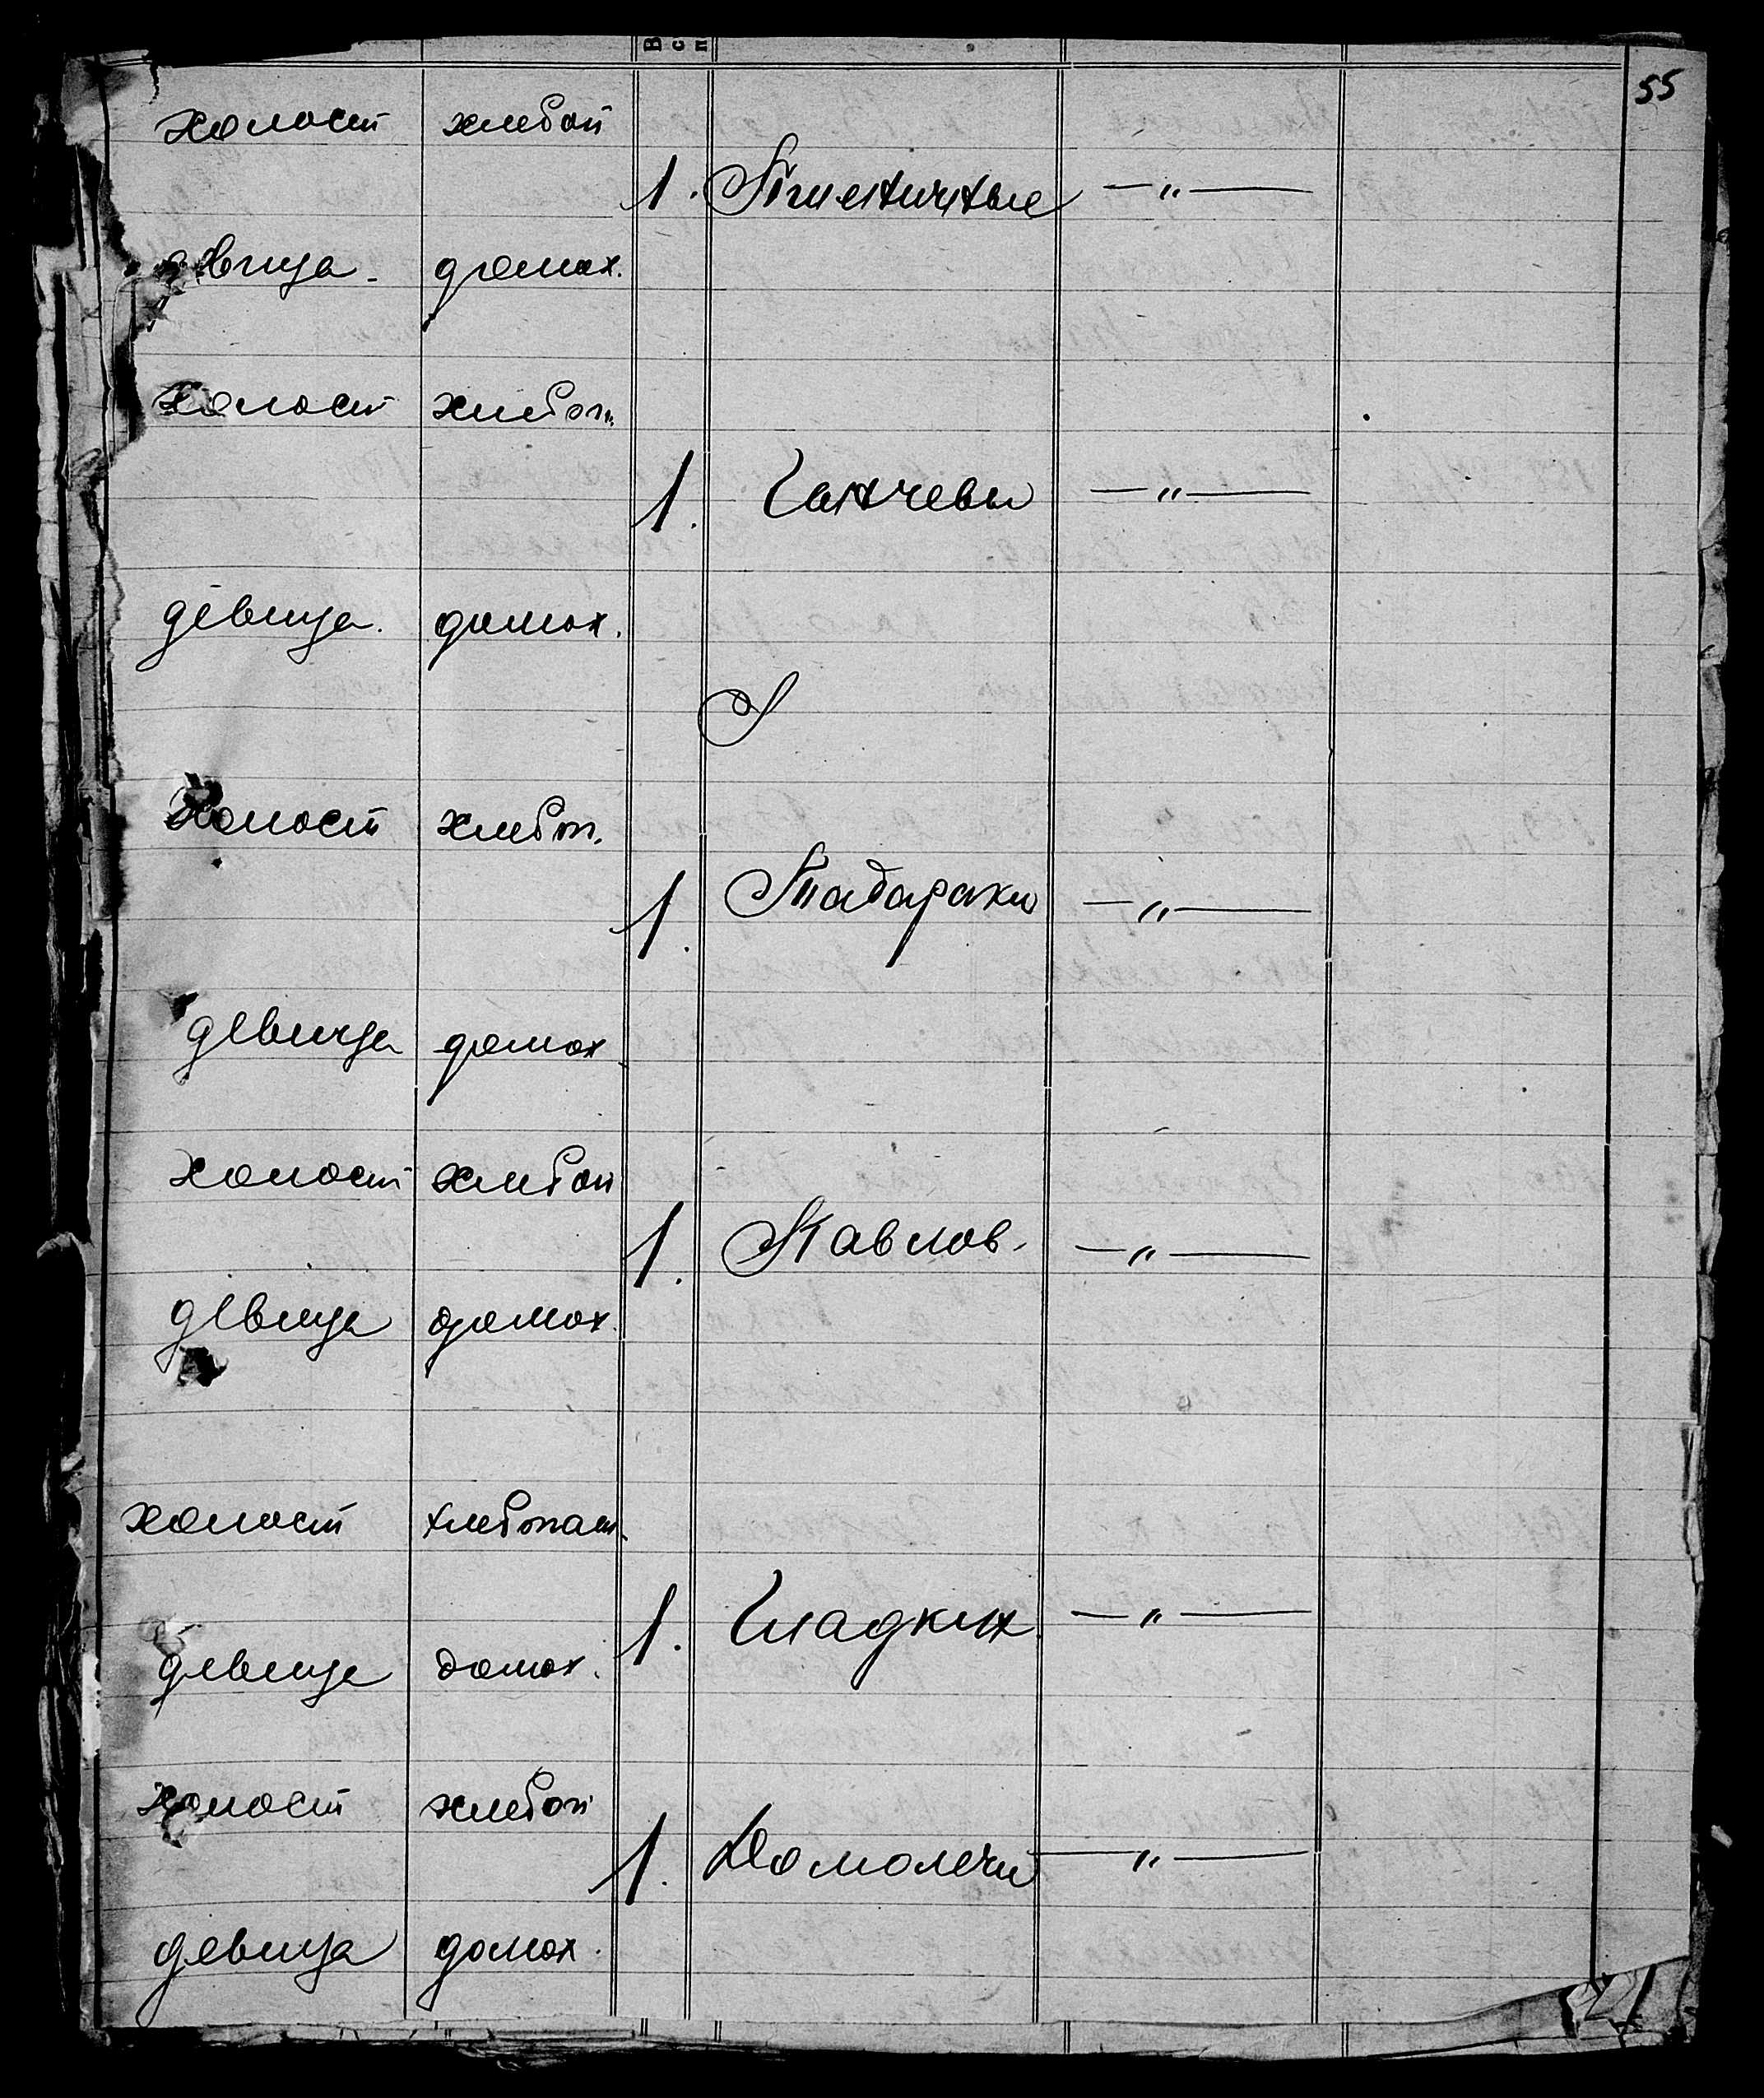 55
холост хлебоп
1. Пшеничные — „ —
девица - домох.
холост хлебоп.
1. Ганчевы — „ —
девица. домох.
холост хлебоп.
1. Табараки — „ —
девица домох
холост хлебоп
1. Павлов. — „ —
девица домох.
холост хлебопаш.
1. Гладких — „ —
девица домох.
холост хлебоп
1. — „ —
девица домох.